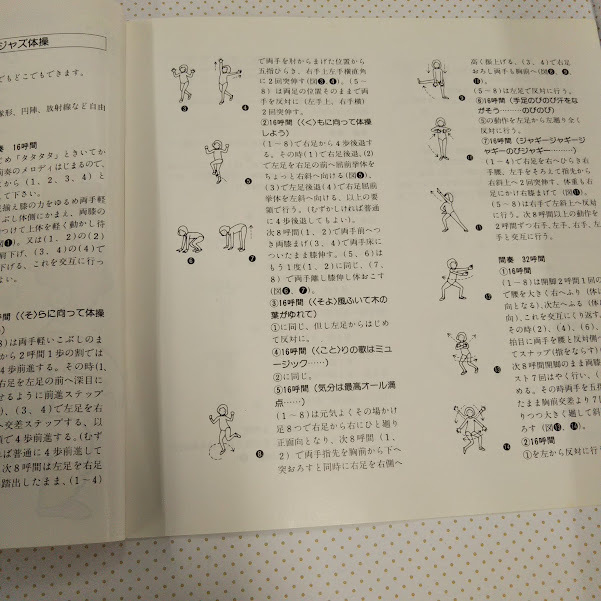 ジャズ体操
でもどこでもできます。
象形、円陣、放射線など自由
奏 16呼間
め「タタタタ」ときいてか
奏のメロディはじまるので、
から(1、2、3、4)と
て下さい。
揃え膝の力をゆるめ両手軽
ぶし体側にかまえ、両膝の
つけて上体を軽く動かし待
図❶)。又は(1、2)の(2)
肩下げ、(3、4)の(4)で
下げる。これを交互に行っ
よい。
呼間(〈そ〉らに向って体操
)
8)は両手軽いこぶしのま
から2呼間1歩の割では
4歩前進する。その時(1、
右足を左足の前へ深目に
せるように前進ステップ
)、(3、4)で左足を右
へ交差ステップする、以
で4歩前進する。(むず
れば普通に4歩前進して
次8呼間は左足を右足
踏出したまま、(1〜4)
で両手を肘からまげた位置から
五指ひらき、右手上左手横直角
に2回突伸す(図❸、❹)。(5〜
8)は両足の位置そのままで両
手を反対に(左手上、右手横)
2回突伸す。
②16呼間(〈く〉もに向って体操
しよう)
(1〜8)で右足から4歩後退す
る。その時(1)で右足後退、(2)
で左足を右足の前へ屈前挙体を
ちょっと右斜へ向ける(図❺)。
(3)で左足後退(4)で右足屈前
挙体を左斜へ向ける、以上の要
領で行う。(むずかしければ普通
に4歩後退してもよい)。
次8呼間(1、2)で両手前へつ
き両膝まげ(3、4)で両手床に
ついたまま膝伸す。(5、6)は
もう1度(1、2)に同じ、(7、
8)で両手離し膝伸し体おこす
(図❻、❼)。
③16呼間(〈そよ〉風ふいて木の
葉がゆれて)
①に同じ、但し左足からはじめ
て反対に。
④16呼間(〈こと〉りの歌はミュ
ージック……)
②に同じ。
⑤16呼間(気分は最高オール満
点……)
(1〜8)は元気よくその場かけ
足8つで右足から右にひと廻り
正面向となり、次8呼間(1、
2)で両手指先を胸前から下へ
突おろすと同時に右足を右側へ
高く振上げる、(3、4)で右足
おろし両手も胸前へ(図❽、❾、
❿)。
(5〜8)は左足で反対に行う。
⑥16呼間(手足のびのび汗をな
がそう………のびのび)
⑤の動作を左足から左廻り全く
反対に行う。
⑦16呼間(ジャギージャギージ
ャギーのびジャギー………)
(1〜4)で右足を右へひらき右
手腰、左手をそろえて指先から
右斜上へ2回突伸す、体重も右
足にかけ右膝まげて(図⓫)。
(5〜8)は右手で左斜上へ反対
に行う。次8呼間以上の動作を
2呼間ずつ右手、左手、右手、左
手と交互に行う。
間奏 32呼間
①16呼間
(1〜8)は開脚2呼間1回の
で腰を大きく右へふり(体は
向となる)、次左へふる(体
向)、これを交互にくり返す。
その時(2)、(4)、(6)、
拍目に両手を腰と反対側へ
てスナップ(指をならす)
次8呼間開脚のまま両膝
スト7回はやく行い、(
める、その時両手を五指
たまま胸前交差より7
りつつ大きく廻して斜
ろす(図⓭、⓮)。
②16呼間
①を左から反対に行う
❸
❹
❺
❻
❼
❽
❾
❿
⓫
⓬
⓭
⓮